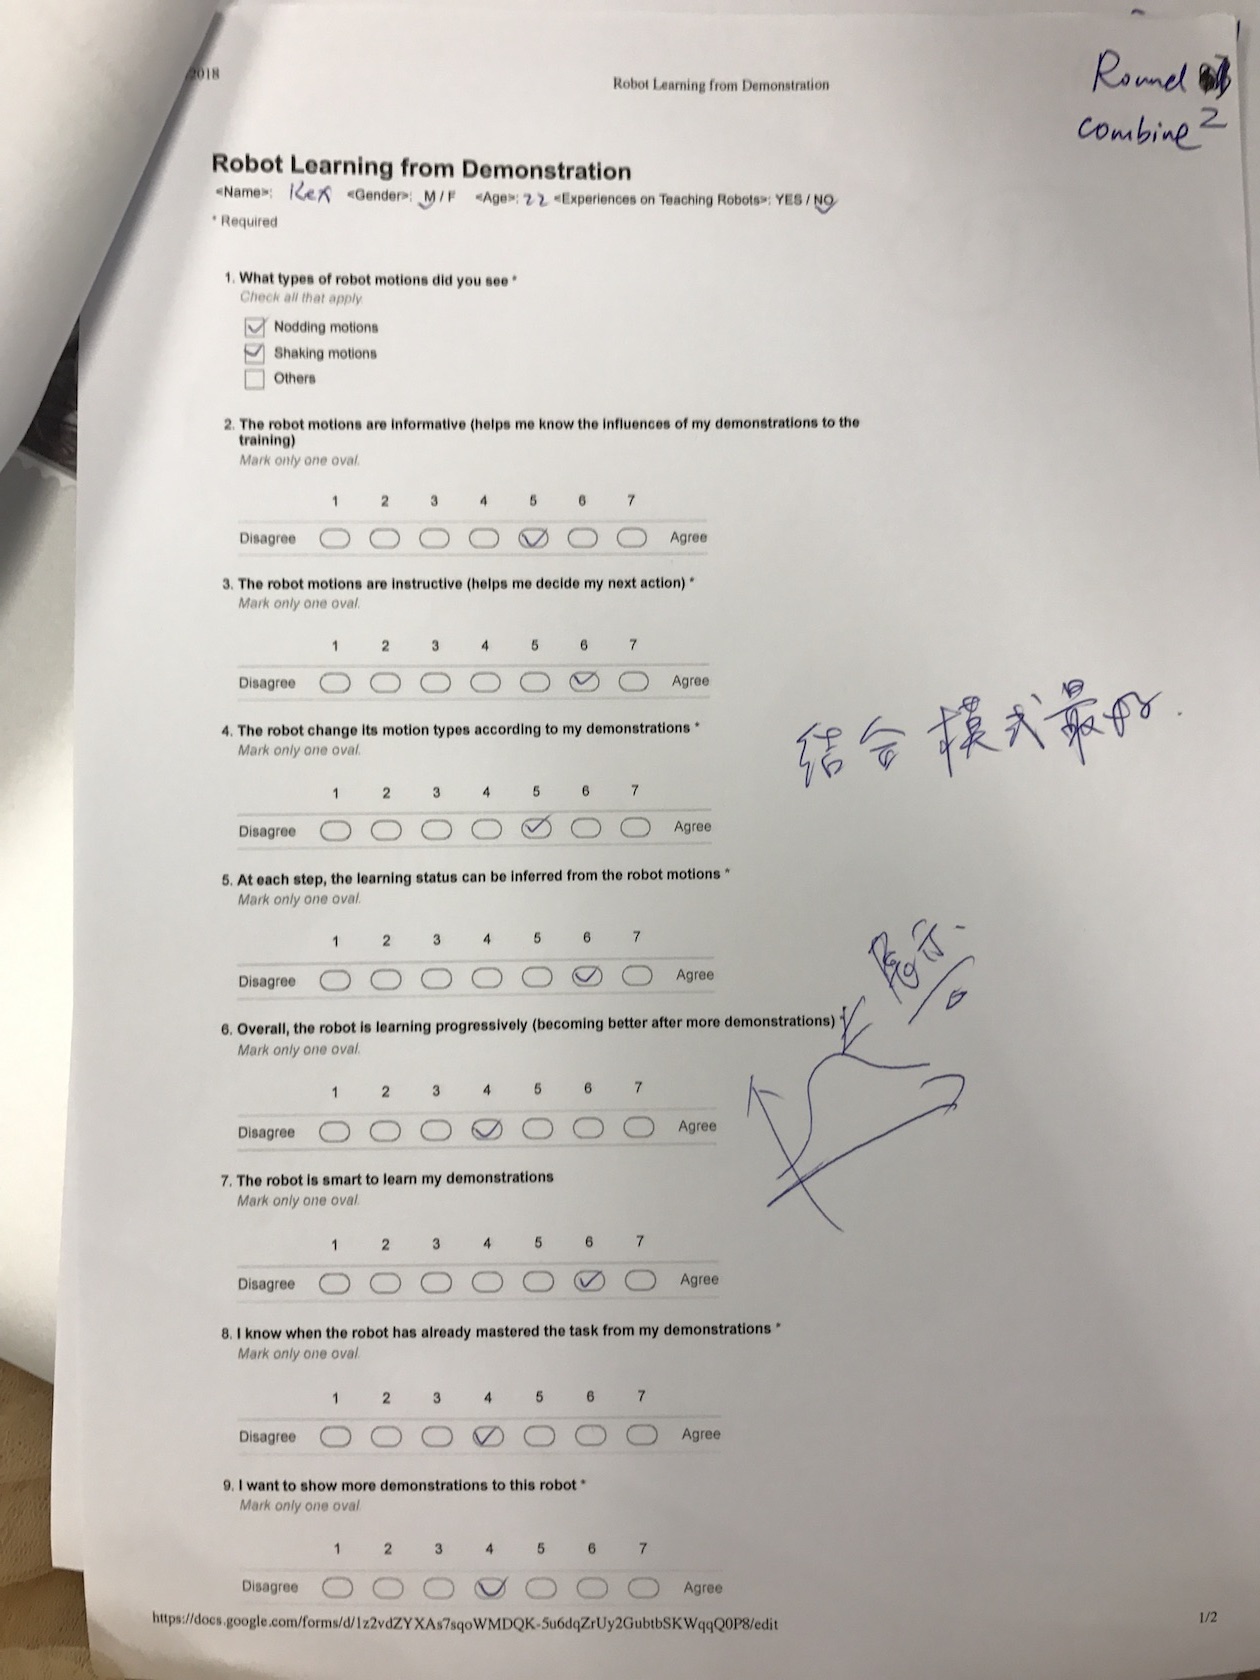 2018
Robot Learning from Demonstration
Round
combine 2
Robot Learning from Demonstration
<Name>: Rex <Gender>: M / F <Age>: 22 <Experiences on Teaching Robots>: YES / NO
* Required
1. What types of robot motions did you see *
Check all that apply.
Nodding motions
Shaking motions
Others
2. The robot motions are informative (helps me know the influences of my demonstrations to the
training)
Mark only one oval.
1 2 3 4 5 6 7
Disagree Agree
3. The robot motions are instructive (helps me decide my next action) *
Mark only one oval.
1 2 3 4 5 6 7
Disagree Agree
结合模式最好.
4. The robot change its motion types according to my demonstrations *
Mark only one oval.
1 2 3 4 5 6 7
Disagree Agree
5. At each step, the learning status can be inferred from the robot motions *
Mark only one oval.
1 2 3 4 5 6 7
Disagree Agree
6. Overall, the robot is learning progressively (becoming better after more demonstrations) *
Mark only one oval.
1 2 3 4 5 6 7
Disagree Agree
7. The robot is smart to learn my demonstrations
Mark only one oval.
1 2 3 4 5 6 7
Disagree Agree
8. I know when the robot has already mastered the task from my demonstrations *
Mark only one oval.
1 2 3 4 5 6 7
Disagree Agree
9. I want to show more demonstrations to this robot *
Mark only one oval.
1 2 3 4 5 6 7
Disagree Agree
https://docs.google.com/forms/d/1z2vdZYXAs7sqoWMDQK-5u6dqZrUy2GubtbSKWqqQ0P8/edit
1/2